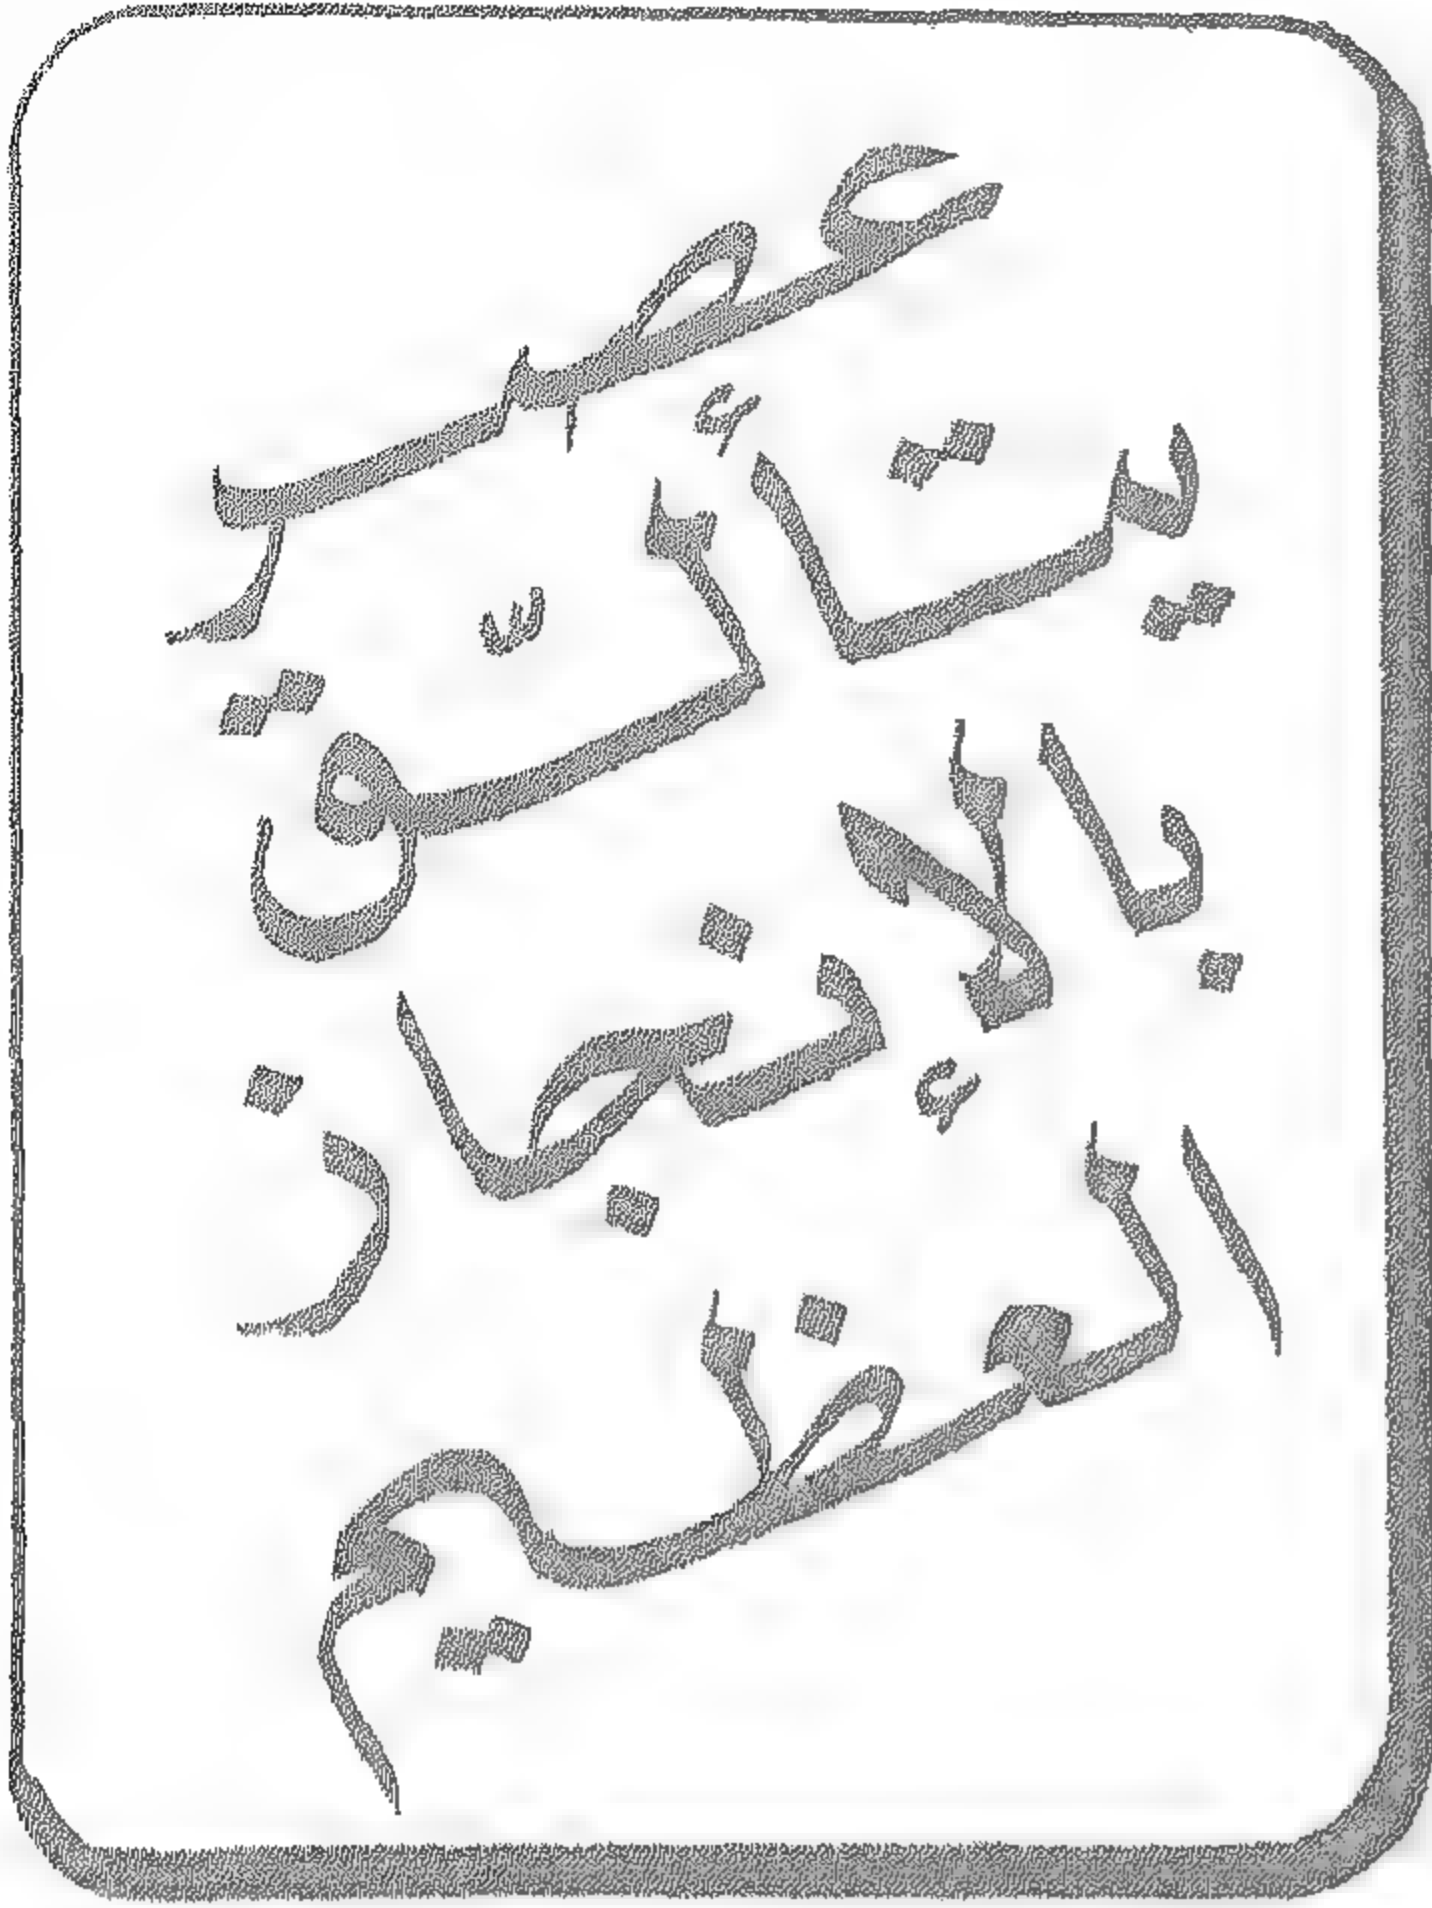 عصر
يتألّق
بالإنجاز
العظيم